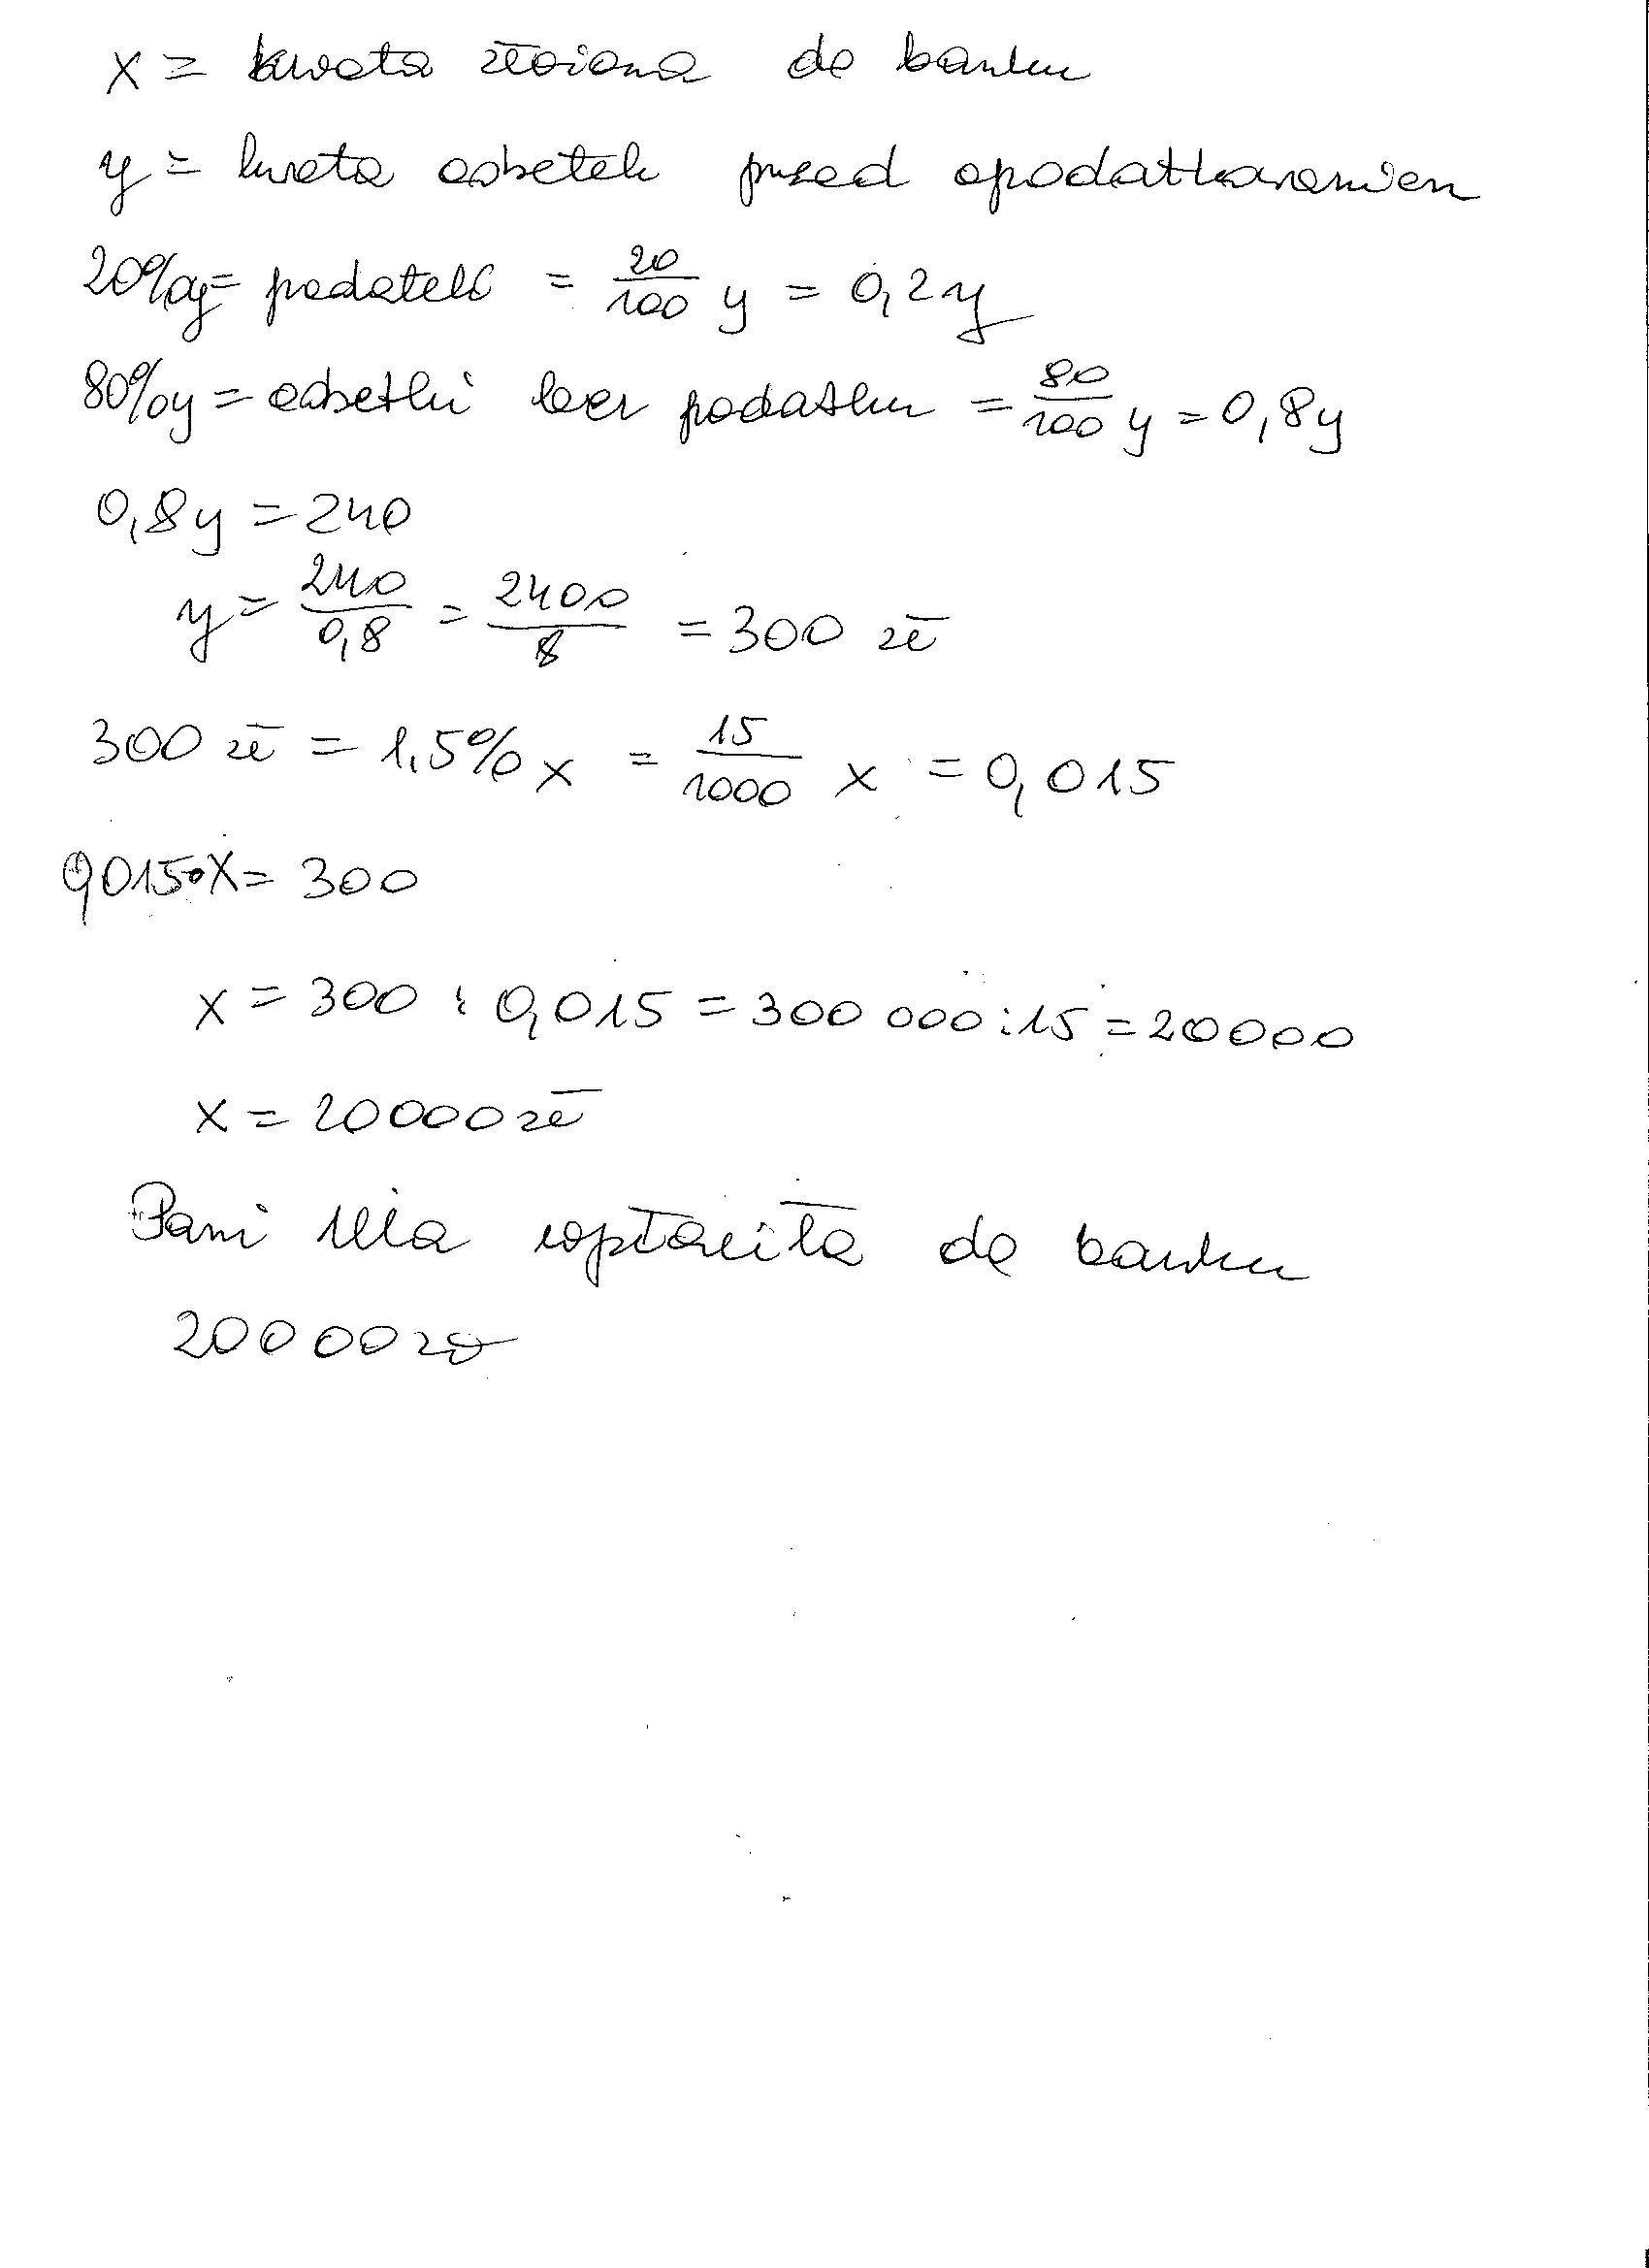 x = kwota złożona do banku
y = kwota odsetek przed opodatkowaniem
20%y = podatek = 20/100 y = 0,2y
80%y = odsetki bez podatku = 80/100 y = 0,8y
0,8y = 240
y = 240/0,8 = 2400/8 = 300 zł
300 zł = 1,5% x = 15/1000 x = 0,015
0,015•x = 300
x = 300 : 0,015 = 300 000 : 15 = 20000
x = 20000 zł
Pani Ula wpłaciła do banku
20000 zł